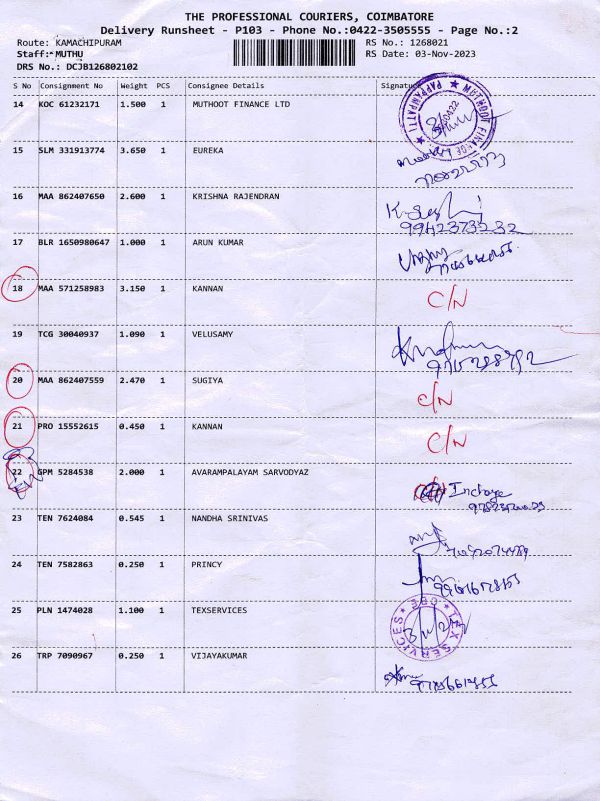 THE PROFESSIONAL COURIERS, COIMBATORE
Delivery Runsheet - P103 - Phone No.:0422-3505555 - Page No.:2
Route: KAMACHIPURAM RS No.: 1268021
Staff: MUTHU RS Date: 03-Nov-2023
DRS No.: DCJB126802102
S No Consignment No Weight PCS Consignee Details Signatur
14 KOC 61232171 1.500 1 MUTHOOT FINANCE LTD
PAPPAMPATTI ★ METHOOT FINANCE ★
15 SLM 331913774 3.650 1 EUREKA
16 MAA 862407650 2.600 1 KRISHNA RAJENDRAN
9942373232
17 BLR 1650980647 1.000 1 ARUN KUMAR
18 MAA 571258983 3.150 1 KANNAN C/N
19 TCG 30040937 1.090 1 VELUSAMY
20 MAA 862407559 2.470 1 SUGIYA C/N
21 PRO 15552615 0.450 1 KANNAN C/N
22 GPM 5284538 2.000 1 AVARAMPALAYAM SARVODYAZ
23 TEN 7624084 0.545 1 NANDHA SRINIVAS
24 TEN 7582863 0.250 1 PRINCY
25 PLN 1474028 1.100 1 TEXSERVICES
★ OBE ★ TEX SERVICES
26 TRP 7090967 0.250 1 VIJAYAKUMAR